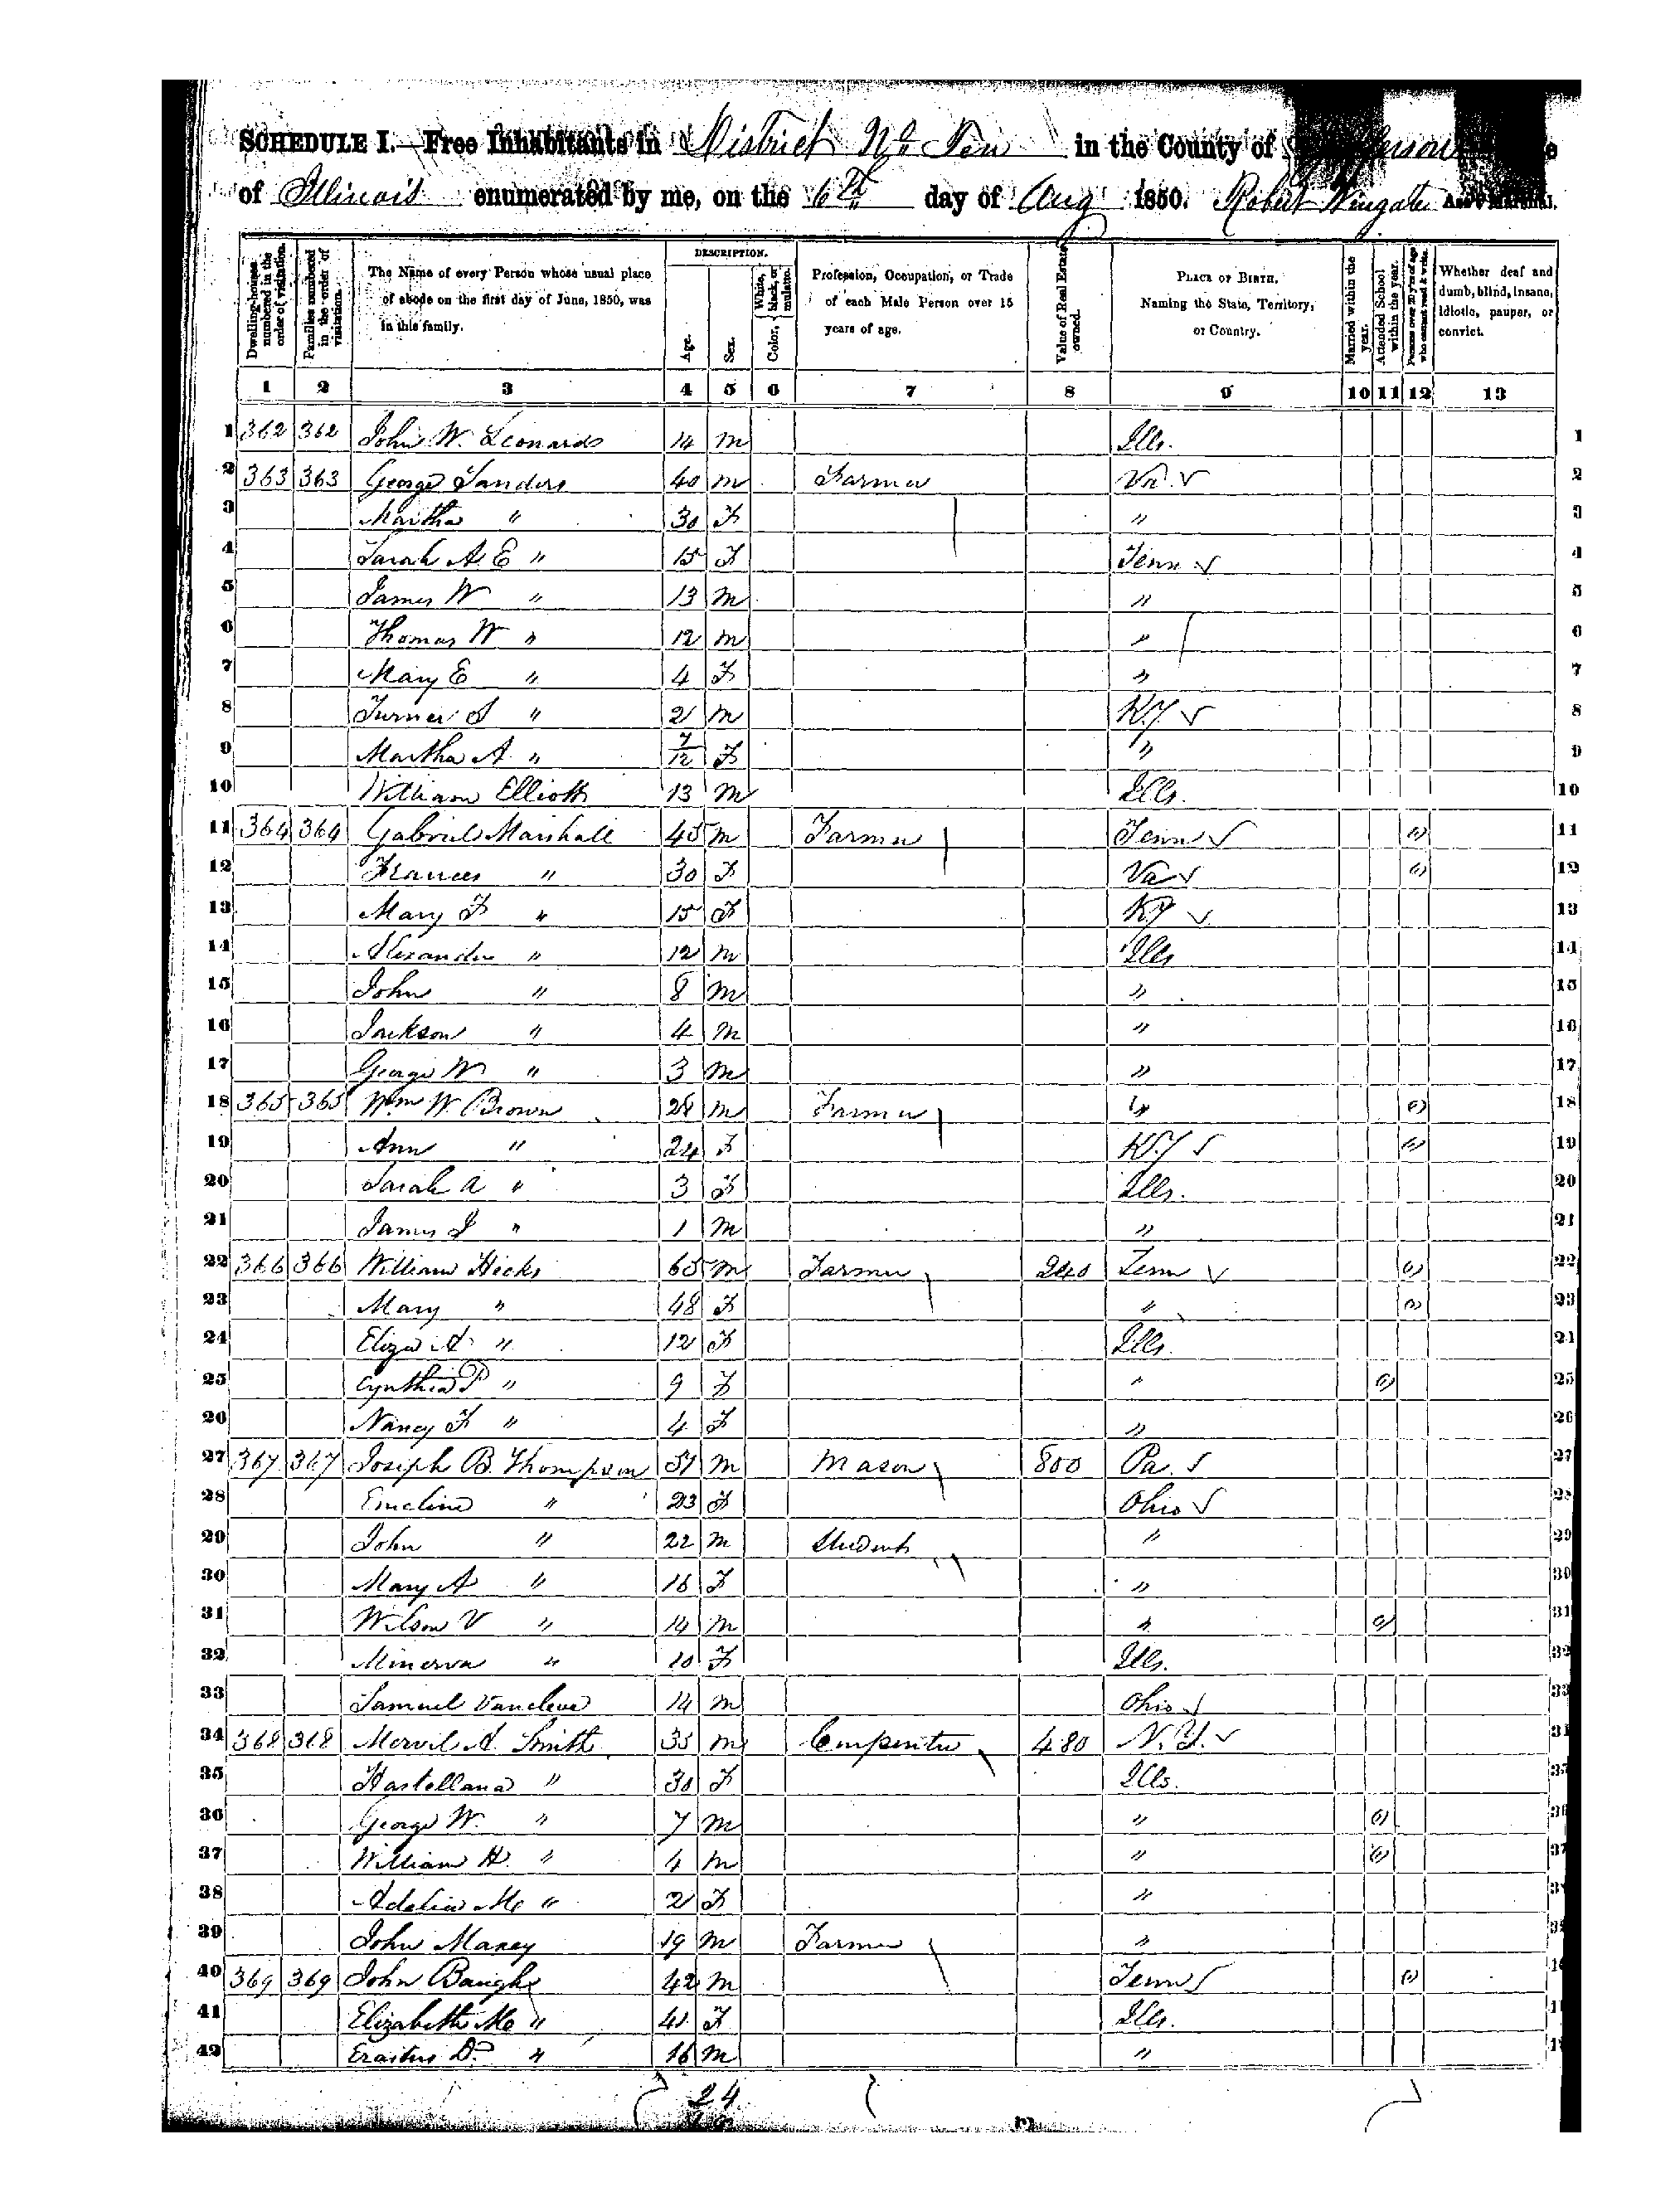 SCHEDULE I.—Free Inhabitants in District No Ten in the County of
of Illinois enumerated by me, on the 6th day of Aug 1850. Robert Wingate Ass't Marshal.
Dwelling-houses numbered in the order of visitation.
Families numbered in the order of visitation.
The Name of every Person whose usual place of abode on the first day of June, 1850, was in this family.
DESCRIPTION.
Age.
Sex.
Color, White, black, or mulatto.
Profession, Occupation, or Trade of each Male Person over 15 years of age.
Value of Real Estate owned.
PLACE OF BIRTH. Naming the State, Territory, or Country.
Married within the year.
Attended School within the year.
Persons over 20 y'rs of age who cannot read & write.
Whether deaf and dumb, blind, insane, idiotic, pauper, or convict.
1 2 3 4 5 6 7 8 9 10 11 12 13
1 362 362 John W. Leonard 14 m Ills. 1
2 363 363 George Sanders 40 m Farmer Va. 2
3 Martha " 30 F " 3
4 Sarah A. E " 15 F Tenn 4
5 James W " 13 m " 5
6 Thomas W " 12 m " 6
7 Mary E " 4 F " 7
8 Turner S " 2 m K.Y 8
9 Martha A. " 7/12 F " 9
10 William Elliott 13 m Ills. 10
11 364 364 Gabriel Marshall 45 m Farmer Tenn 11
12 Frances " 30 F Va 12
13 Mary F " 15 F K.Y 13
14 Alexander " 12 m Ills 14
15 John " 8 m " 15
16 Jackson " 4 m " 16
17 George W " 3 m " 17
18 365 365 Wm W. Brown 28 m Farmer " 18
19 Ann " 24 F K.Y 19
20 Sarah A " 3 F Ills. 20
21 James J " 1 m " 21
22 366 366 William Hicks 65 m Farmer 240 Tenn 22
23 Mary " 48 F " 23
24 Eliza A " 12 F Ills. 24
25 Cynthia P " 9 F " 25
26 Nancy F " 4 F " 26
27 367 367 Joseph B. Thompson 51 m Mason 800 Pa. 27
28 Emeline " 23 F Ohio 28
29 John " 22 m Student " 29
30 Mary A " 16 F " 30
31 Wilson V " 14 m " 31
32 Minerva " 10 F Ills. 32
33 Samuel Vancleve 14 m Ohio 33
34 368 368 Mervil A. Smith 35 m Carpenter 480 N.Y. 3
35 Hastellana " 30 F Ills. 35
36 George W. " 7 m " 36
37 William H. " 4 m " 37
38 Adelia M " 2 F " 3
39 John Maney 19 m Farmer " 3
40 369 369 John Baugh 42 m Tenn
41 Elizabeth M " 41 F Ills.
42 Erastus D. " 16 m "
24